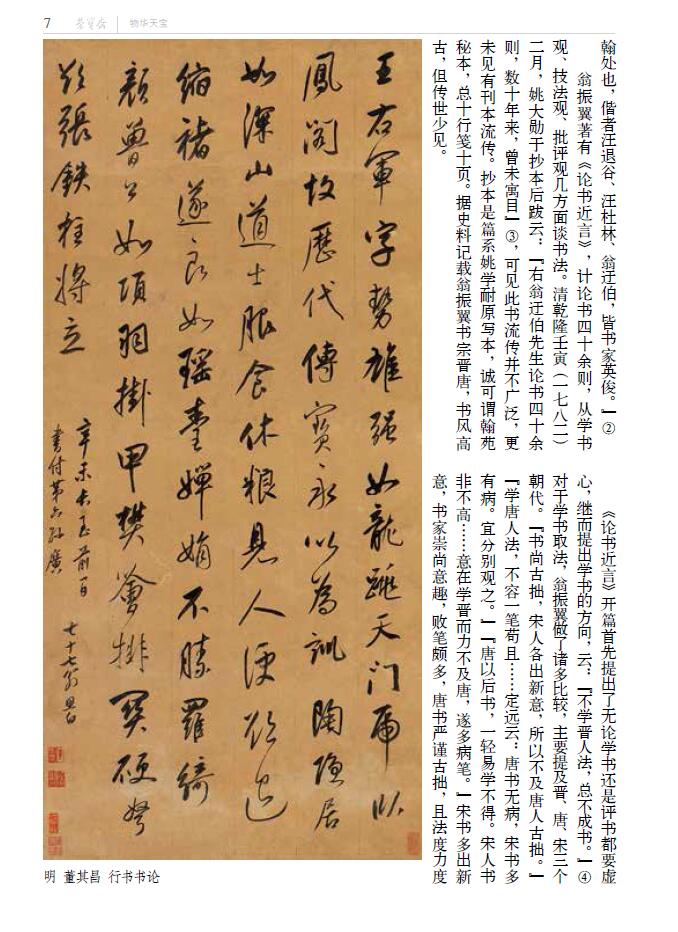 7 荣宝斋 物华天宝
翰处也，偕者汪退谷、汪杜林、翁迂伯，皆书家英俊。』②
翁振翼著有《论书近言》，计论书四十余则，从学书
观、技法观、批评观几方面谈书法。清乾隆壬寅（一七八二）
二月，姚大勋于抄本后跋云：『右翁迂伯先生论书四十余
则，数十年来，曾未寓目』③，可见此书流传并不广泛，更
未见有刊本流传。抄本是篇系姚学耐原写本，诚可谓翰苑
秘本，总十行笺十页。据史料记载翁振翼书宗晋唐，书风高
古，但传世少见。
《论书近言》开篇首先提出了无论学书还是评书都要虚
心，继而提出学书的方向，云：『不学晋人法，总不成书。』④
对于学书取法，翁振翼做了诸多比较，主要提及晋、唐、宋三个
朝代。『书尚古拙，宋人各出新意，所以不及唐人古拙。』
『学唐人法，不容一笔苟且……定远云：唐书无病，宋书多
有病。宜分别观之。』『唐以后书，一轻易学不得。宋人书
非不高……意在学晋而力不及唐，遂多病笔。』宋书多出新
意，书家崇尚意趣，败笔颇多，唐书严谨古拙，且法度力度
王右軍字勢雄强如龍跳天门虎卧
鳳阁故歷代傳寳永以為訓陶隐居
如深山道士服食休粮見人便欲退
縮褚遂良如瑶臺嬋娟不勝羅綺
颜魯公如項羽掛甲樊噲排闥硬弩
欲張鐵柱將立
辛未长至前一日
書付第六孙廣 七十七翁其昌
明 董其昌 行书书论